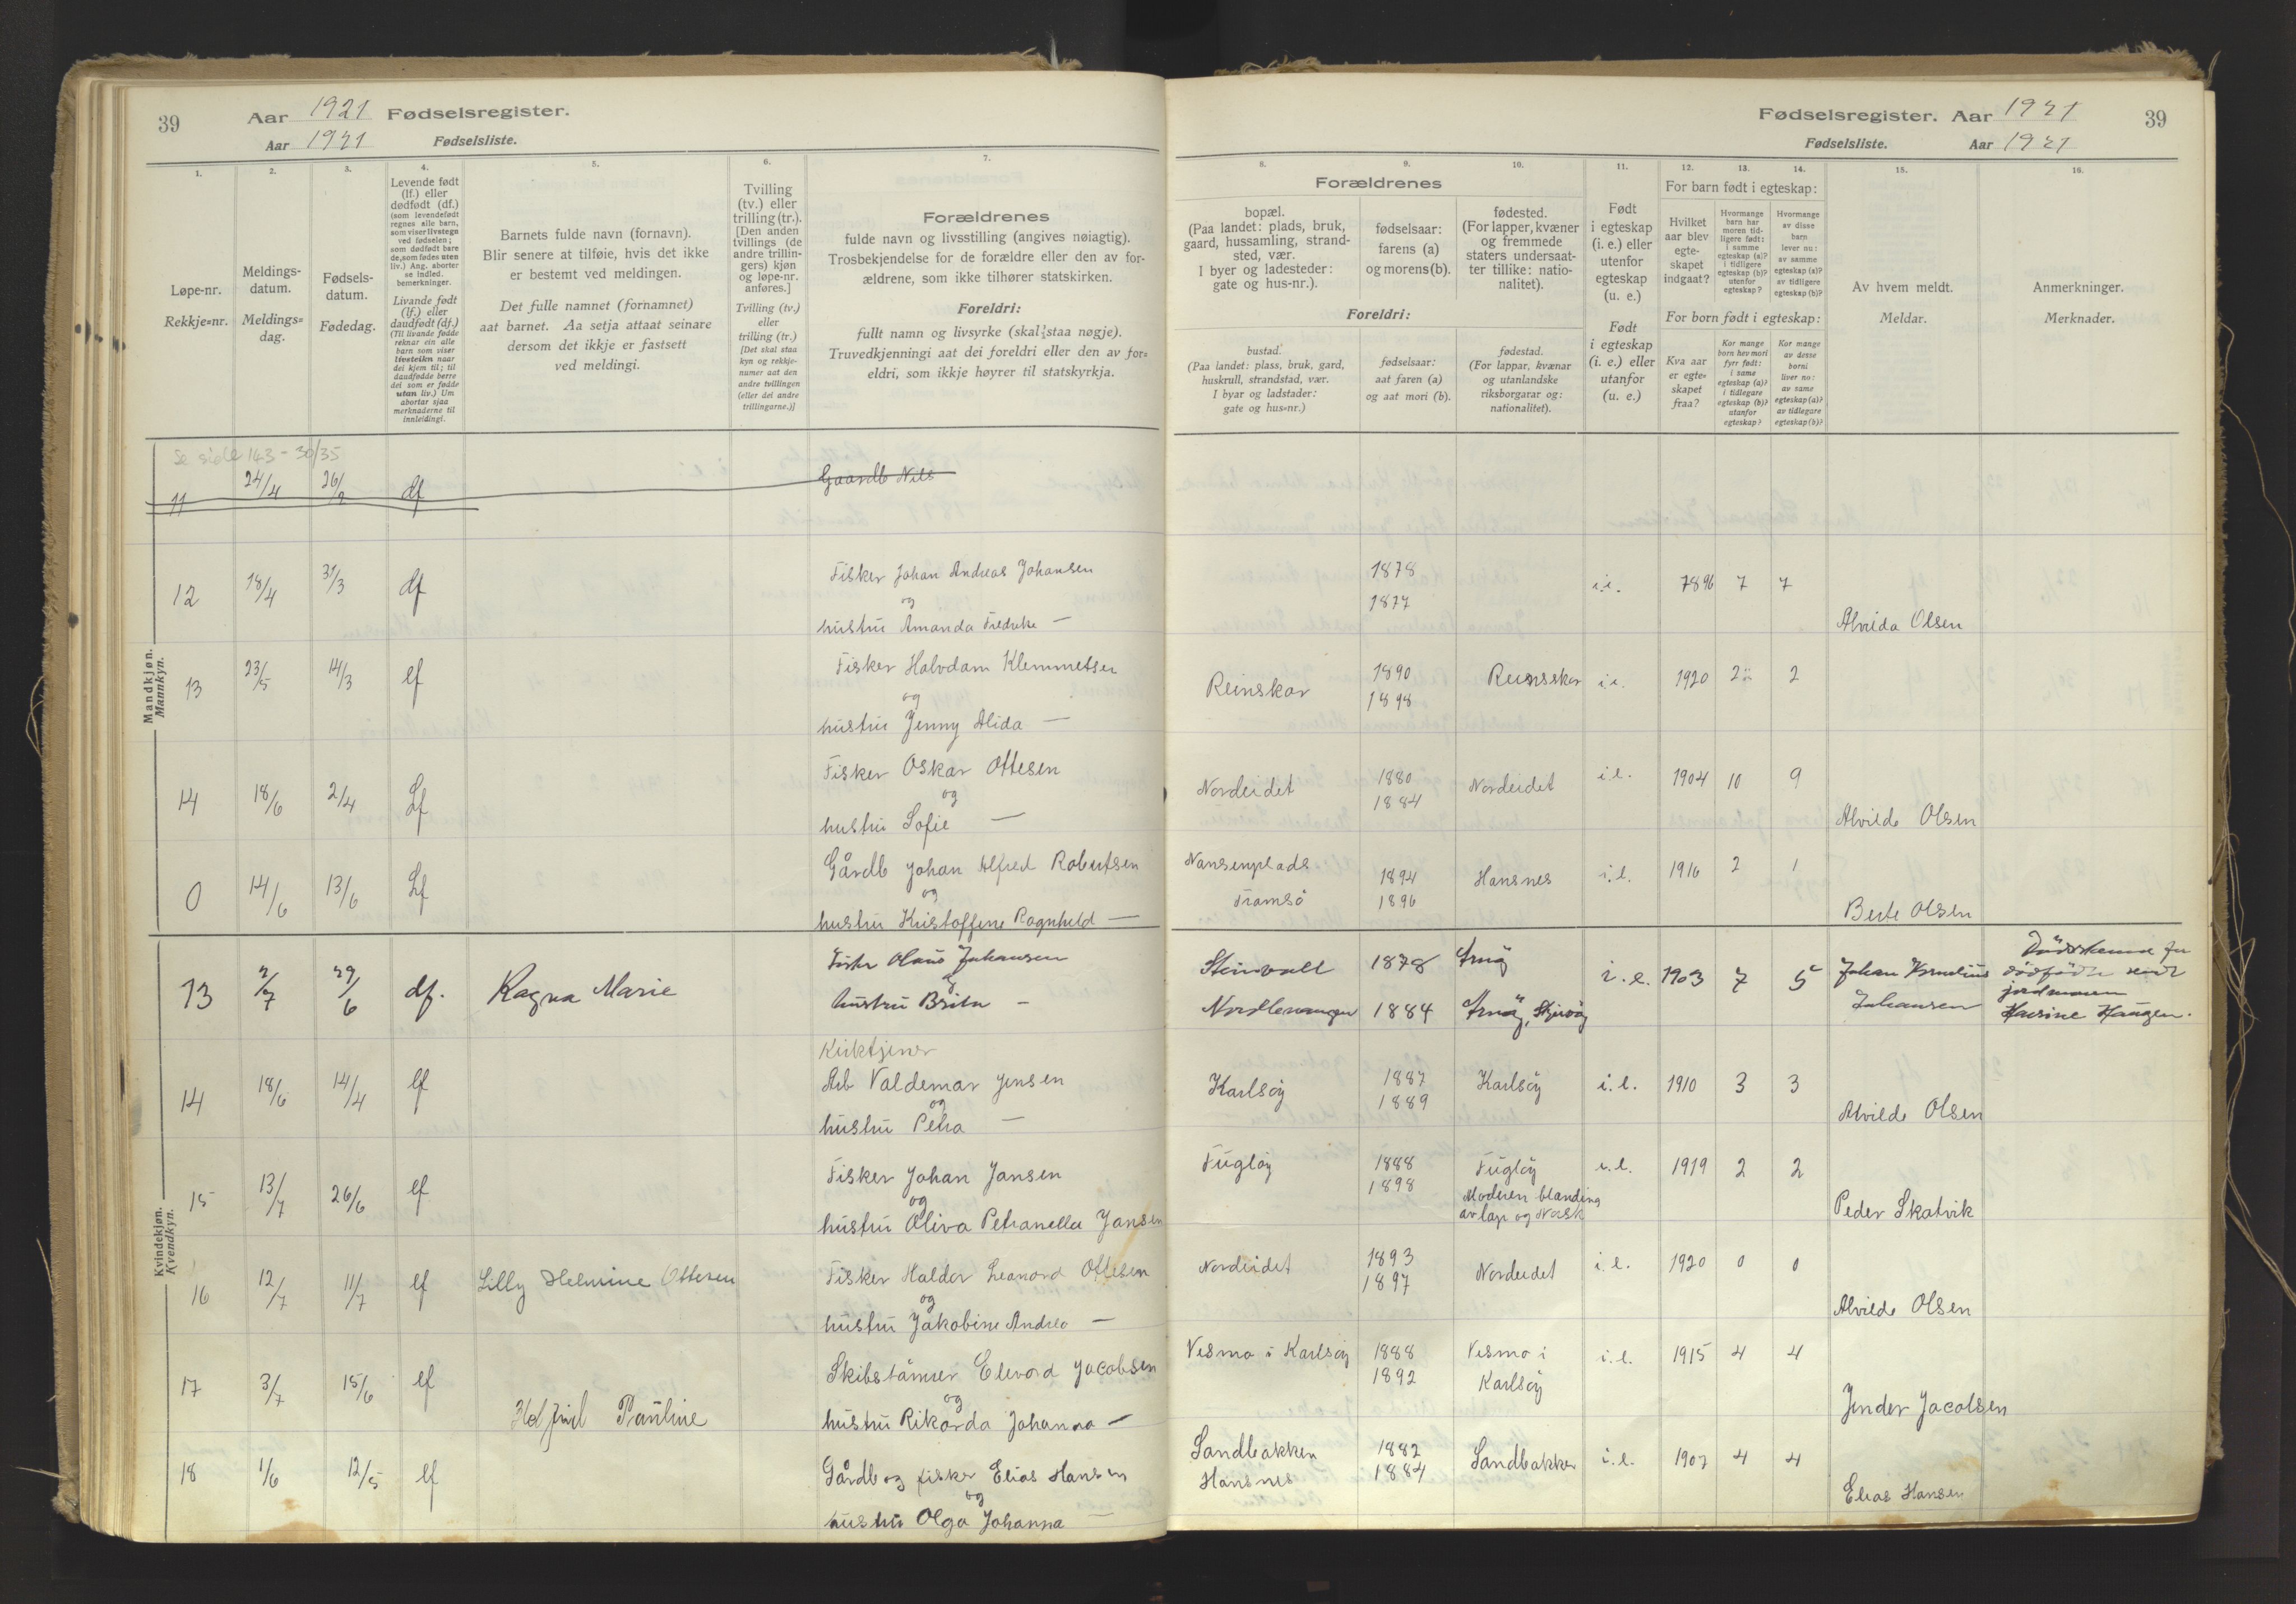 39 Aar 1921 Fødselsregister.
Aar 1921 Fødselsliste.
Fødselsregister. Aar 1921 39
Fødselsliste. Aar 1921
1. 2. 3. 4. 5. 6. 7.
Løpe-nr.
Rekkje=nr.
Meldings-
datum.
Meldings=
dag.
Fødsels-
datum.
Fødedag.
Levende født
(lf.) eller
dødfødt (df.)
(som levendefødt
regnes alle barn,
som viser livstegn
ved fødselen;
som dødfødt bare
de, som fødes uten
liv.) Ang. aborter
se indled.
bemerkninger.
Livande født
(lf.) eller
daudfødt (df.)
(Til livande fødde
reknar ein alle
barn som viser
livsteikn naar
dei kjem til; til
daudfødde berre
dei som er fødde
utan liv.) Um
abortar sjaa
merknaderne til
innleidingi.
Barnets fulde navn (fornavn).
Blir senere at tilføie, hvis det ikke
er bestemt ved meldingen.
Det fulle namnet (fornamnet)
aat barnet. Aa setja attaat seinare
dersom det ikkje er fastsett
ved meldingi.
Tvilling
(tv.) eller
trilling (tr.).
[Den anden
tvillings (de
andre trillin-
gers) kjøn
og løpe-nr.
anføres.]
Tvilling (tv.)
eller
trilling (tr.)
[Det skal staa
kyn og rekkje-
numer aat den
andre tvillingen
(eller dei andre
trillingarne.)]
Forældrenes
fulde navn og livsstilling (angives nøiagtig).
Trosbekjendelse for de forældre eller den av for-
ældrene, som ikke tilhører statskirken.
Foreldri:
fullt namn og livsyrke (skal staa nøgje).
Truvedkjenningi aat dei foreldri eller den av for=
eldri, som ikkje høyrer til statskyrkja.
8. 9. 10. 11. 12. 13. 14. 15. 16.
Forældrenes
bopæl.
(Paa landet: plads, bruk,
gaard, hussamling, strand-
sted, vær.
I byer og ladesteder:
gate og hus-nr.).
fødselsaar:
farens (a)
og morens (b).
fødested.
(For lapper, kvæner
og fremmede
staters undersaat-
ter tillike: natio-
nalitet).
Foreldri:
bustad.
(Paa landet: plass, bruk, gard,
huskrull, strandstad, vær.
I byar og ladstader:
gate og hus=nr.)
fødselsaar:
aat faren (a)
og aat mori (b).
fødestad.
(For lappar, kvænar
og utanlandske
riksborgarar og:
nationalitet).
Født
i egteskap
(i. e.) eller
utenfor
egteskap
(u. e.)
Født
i egteskap
(i. e.) eller
utanfor
(u. e.)
For barn født i egteskap:
Hvilket
aar blev
egte-
skapet
indgaat?
Hvormange
barn har
moren tid-
ligere født:
i samme
egteskap (a)?
i tidligere
egteskap (b)?
utenfor
egteskap?
Hvormange
av disse
barn
lever nu:
av samme
egteskap (a)?
av tidligere
egteskap (b)?
For born født i egteskap:
Kva aar
er egte=
skapet
fraa?
Kor mange
born hev mori
fyrr født:
i same
egteskap (a)?
i tidlegare
egteskap (b)?
utanfor
egteskap?
Kor mange
av desse
borni
liver no:
av same
egteskap (a)?
av tidlegare
egteskap (b)?
Av hvem meldt.
Meldar.
Anmerkninger.
Merknader.
Mandkjøn.
Mannkyn.
Se side 143 - 30/35
11 24/4 26/2 df Gaardb Nils
12 18/4 31/3 df Fisker Johan Andreas Johansen
og
hustru Amanda Fredrikke —
1878
1877
i.e. 1896 7 7 Alvilda Olsen
13 23/5 14/3 lf Fisker Halvdam Klemmetsen
og
hustru Jenny Alida —
Reinskar 1890
1898
Reinsskar i.e. 1920 2 2
14 18/6 2/4 Lf Fisker Oskar Ottesen
og
hustru Sofie —
Nordeidet 1880
1884
Nordeidet i.e. 1904 10 9 Alvilde Olsen
0 14/6 13/6 Lf Gårdb Johan Alfred Robertsen
og
hustru Kristoffine Ragnhild —
Nansenplads
Tromsö
1894
1896
Hansnes i.e. 1916 2 1 Berte Olsen
Kvindekjøn.
Kvendkyn.
13 2/7 29/6 df. Ragna Marie
Fisker Olaus Johansen
og
hustru Brita —
Steinvoll 1878 Arnöy
Nordlenangen 1884 Arnöy, Skjervöy
i.e. 1903 7 5 Johan Kornelius
Johansen
dödfödte sendt
jordmoren
Hansine Haugen.
14 18/6 14/4 lf Kirketjener
Arb Valdemar Jensen
og
hustru Petra —
Karlsöy 1887
1889
Karlsöy i.e. 1910 3 3 Alvilde Olsen
15 13/7 26/6 lf Fisker Johan Jansen
og
hustru Oliva Petranella Jansen
Fuglöy 1888
1898
Fuglöy
Moderen blanding
av lap og Norsk
i.e. 1919 2 2 Peder Skatvik
16 12/7 11/7 lf Lilly Helmine Ottesen
Fisker Haldor Leonard Ottesen
og
hustru Jakobine Andrea —
Nordeidet 1893
1897
Nordeidet i.e. 1920 0 0 Alvilde Olsen
17 3/7 15/6 lf Helfrid Pauline
Skibstömrer Elevord Jacobsen
og
hustru Rikarda Johanna —
Vesmo i Karlsöy 1888
1892
Vesmo i
Karlsöy
i.e. 1915 4 4 Jender Jacobsen
18 1/6 12/5 lf Gårdb og fisker Elias Hansen
og
hustru Olga Johanna —
Sandbakken
Hansnes
1882
1884
Sandbakken i.e. 1907 4 4 Elias Hansen